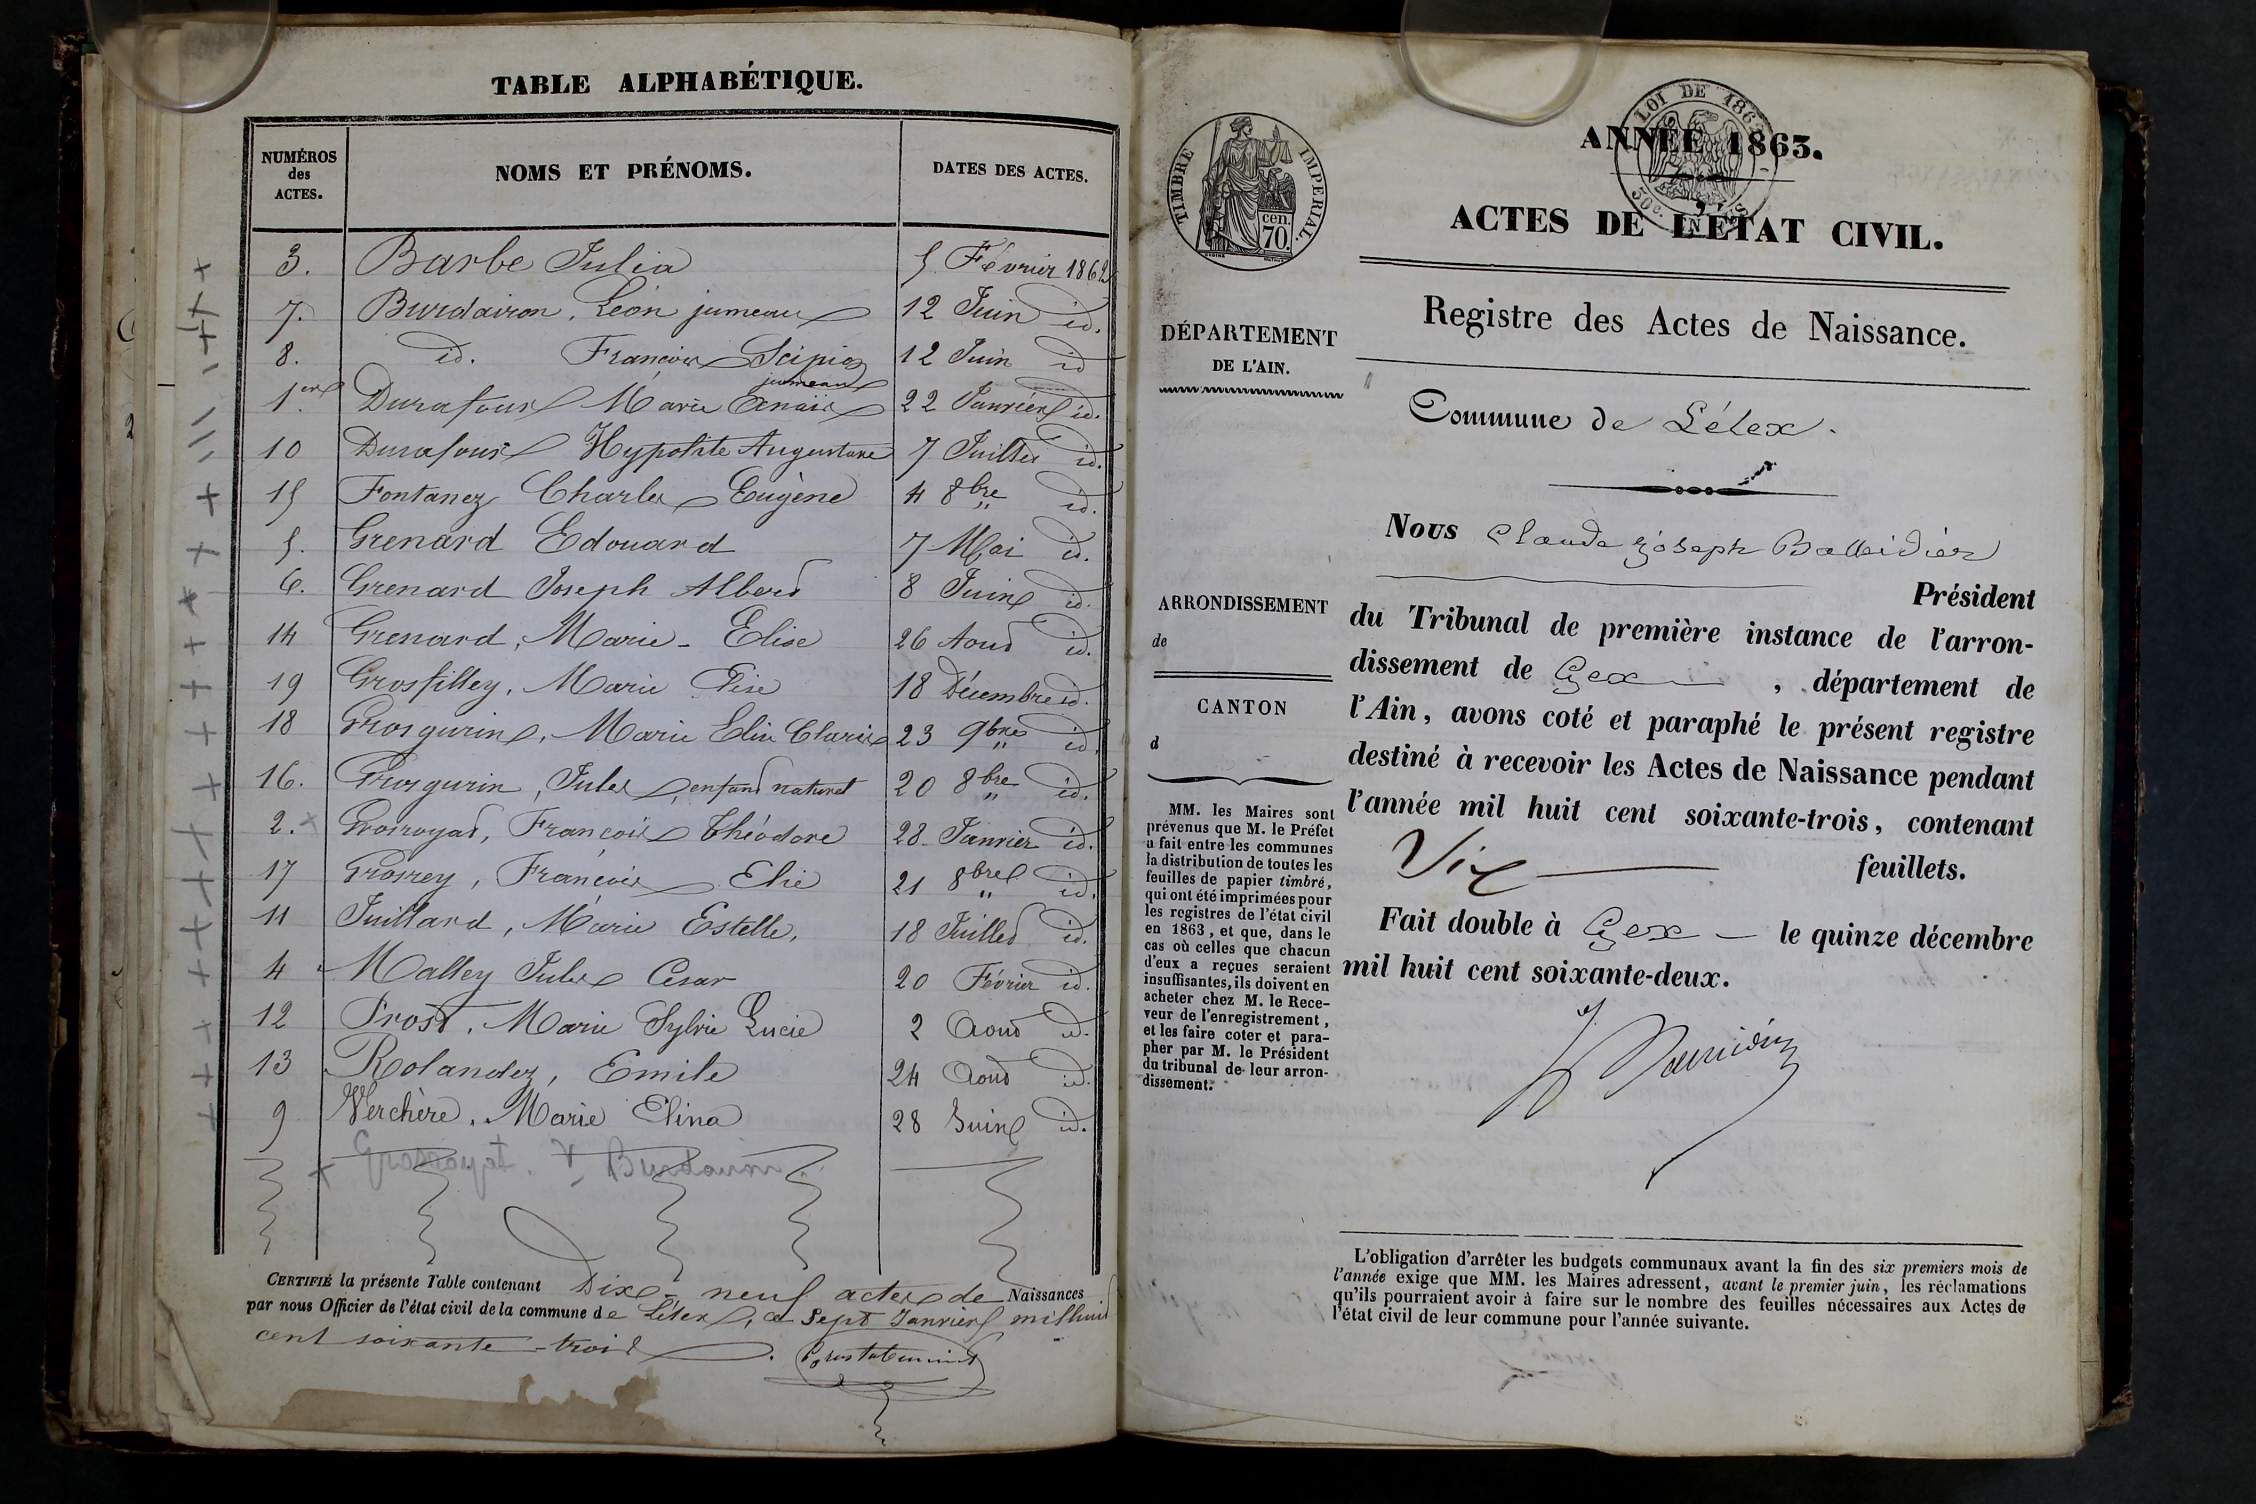 TABLE ALPHABÉTIQUE.
NUMÉROS des ACTES. NOMS ET PRÉNOMS. DATES DES ACTES.
3. Barbe Julia 5 Février 1862
7. Burdairon, Léon jumeau 12 Juin id.
8. id. François Scipion jumeau 12 Juin id
1er Durafour Marie Anaïs 22 Janvier id.
10 Durafour Hypolite Augustave 7 Juillet id.
15 Fontanez Charles Eugène 4 8bre id.
5. Grenard Edouard 7 Mai id.
6. Grenard Joseph Albert 8 Juin id.
14 Grenard, Marie-Elise 26 Aout id.
19 Grosfilley, Marie Elise 18 Décembre id.
18 Grosgurin, Marie Elise Clarisse 23 9bre id.
16. Grosgurin, Jules, enfant naturel 20 8bre id.
2. x Grosroyat, François Théodore 28 Janvier id.
17 Grosrey, François Elie 21 8bre id.
11 Juillard, Marie Estelle. 18 Juillet id.
4 Malley Jules César 20 Février id.
12 Prost, Marie Sylvie Lucie 2 Aout id.
13 Rolandez, Emile 24 Aout id.
9 Verchère, Marie Elina 28 Juin id.
x Grosroyat. V
CERTIFIÉ la présente Table contenant Dix-neuf actes de Naissances
par nous Officier de l'état civil de la commune de Lélex, a Sept Janvier mil huit
cent soixante-trois.
TIMBRE IMPÉRIAL.
cen. 70.
LOI DE 1862
50c. EN SUS
ANNÉE 1863.
ACTES DE L'ÉTAT CIVIL.
Registre des Actes de Naissance.
DÉPARTEMENT
DE L'AIN.
Commune de Lélex.
Nous Claude Joseph Balleidier
Président
ARRONDISSEMENT
de
CANTON
d
du Tribunal de première instance de l'arron-
dissement de Gex, département de
l'Ain, avons coté et paraphé le présent registre
destiné à recevoir les Actes de Naissance pendant
l'année mil huit cent soixante-trois, contenant
Six feuillets.
Fait double à Gex le quinze décembre
mil huit cent soixante-deux.
MM. les Maires sont
prévenus que M. le Préfet
a fait entre les communes
la distribution de toutes les
feuilles de papier timbré,
qui ont été imprimées pour
les registres de l'état civil
en 1863, et que, dans le
cas où celles que chacun
d'eux a reçues seraient
insuffisantes, ils doivent en
acheter chez M. le Rece-
veur de l'enregistrement,
et les faire coter et para-
pher par M. le Président
du tribunal de leur arron-
dissement.
L'obligation d'arrêter les budgets communaux avant la fin des six premiers mois de
l'année exige que MM. les Maires adressent, avant le premier juin, les réclamations
qu'ils pourraient avoir à faire sur le nombre des feuilles nécessaires aux Actes de
l'état civil de leur commune pour l'année suivante.